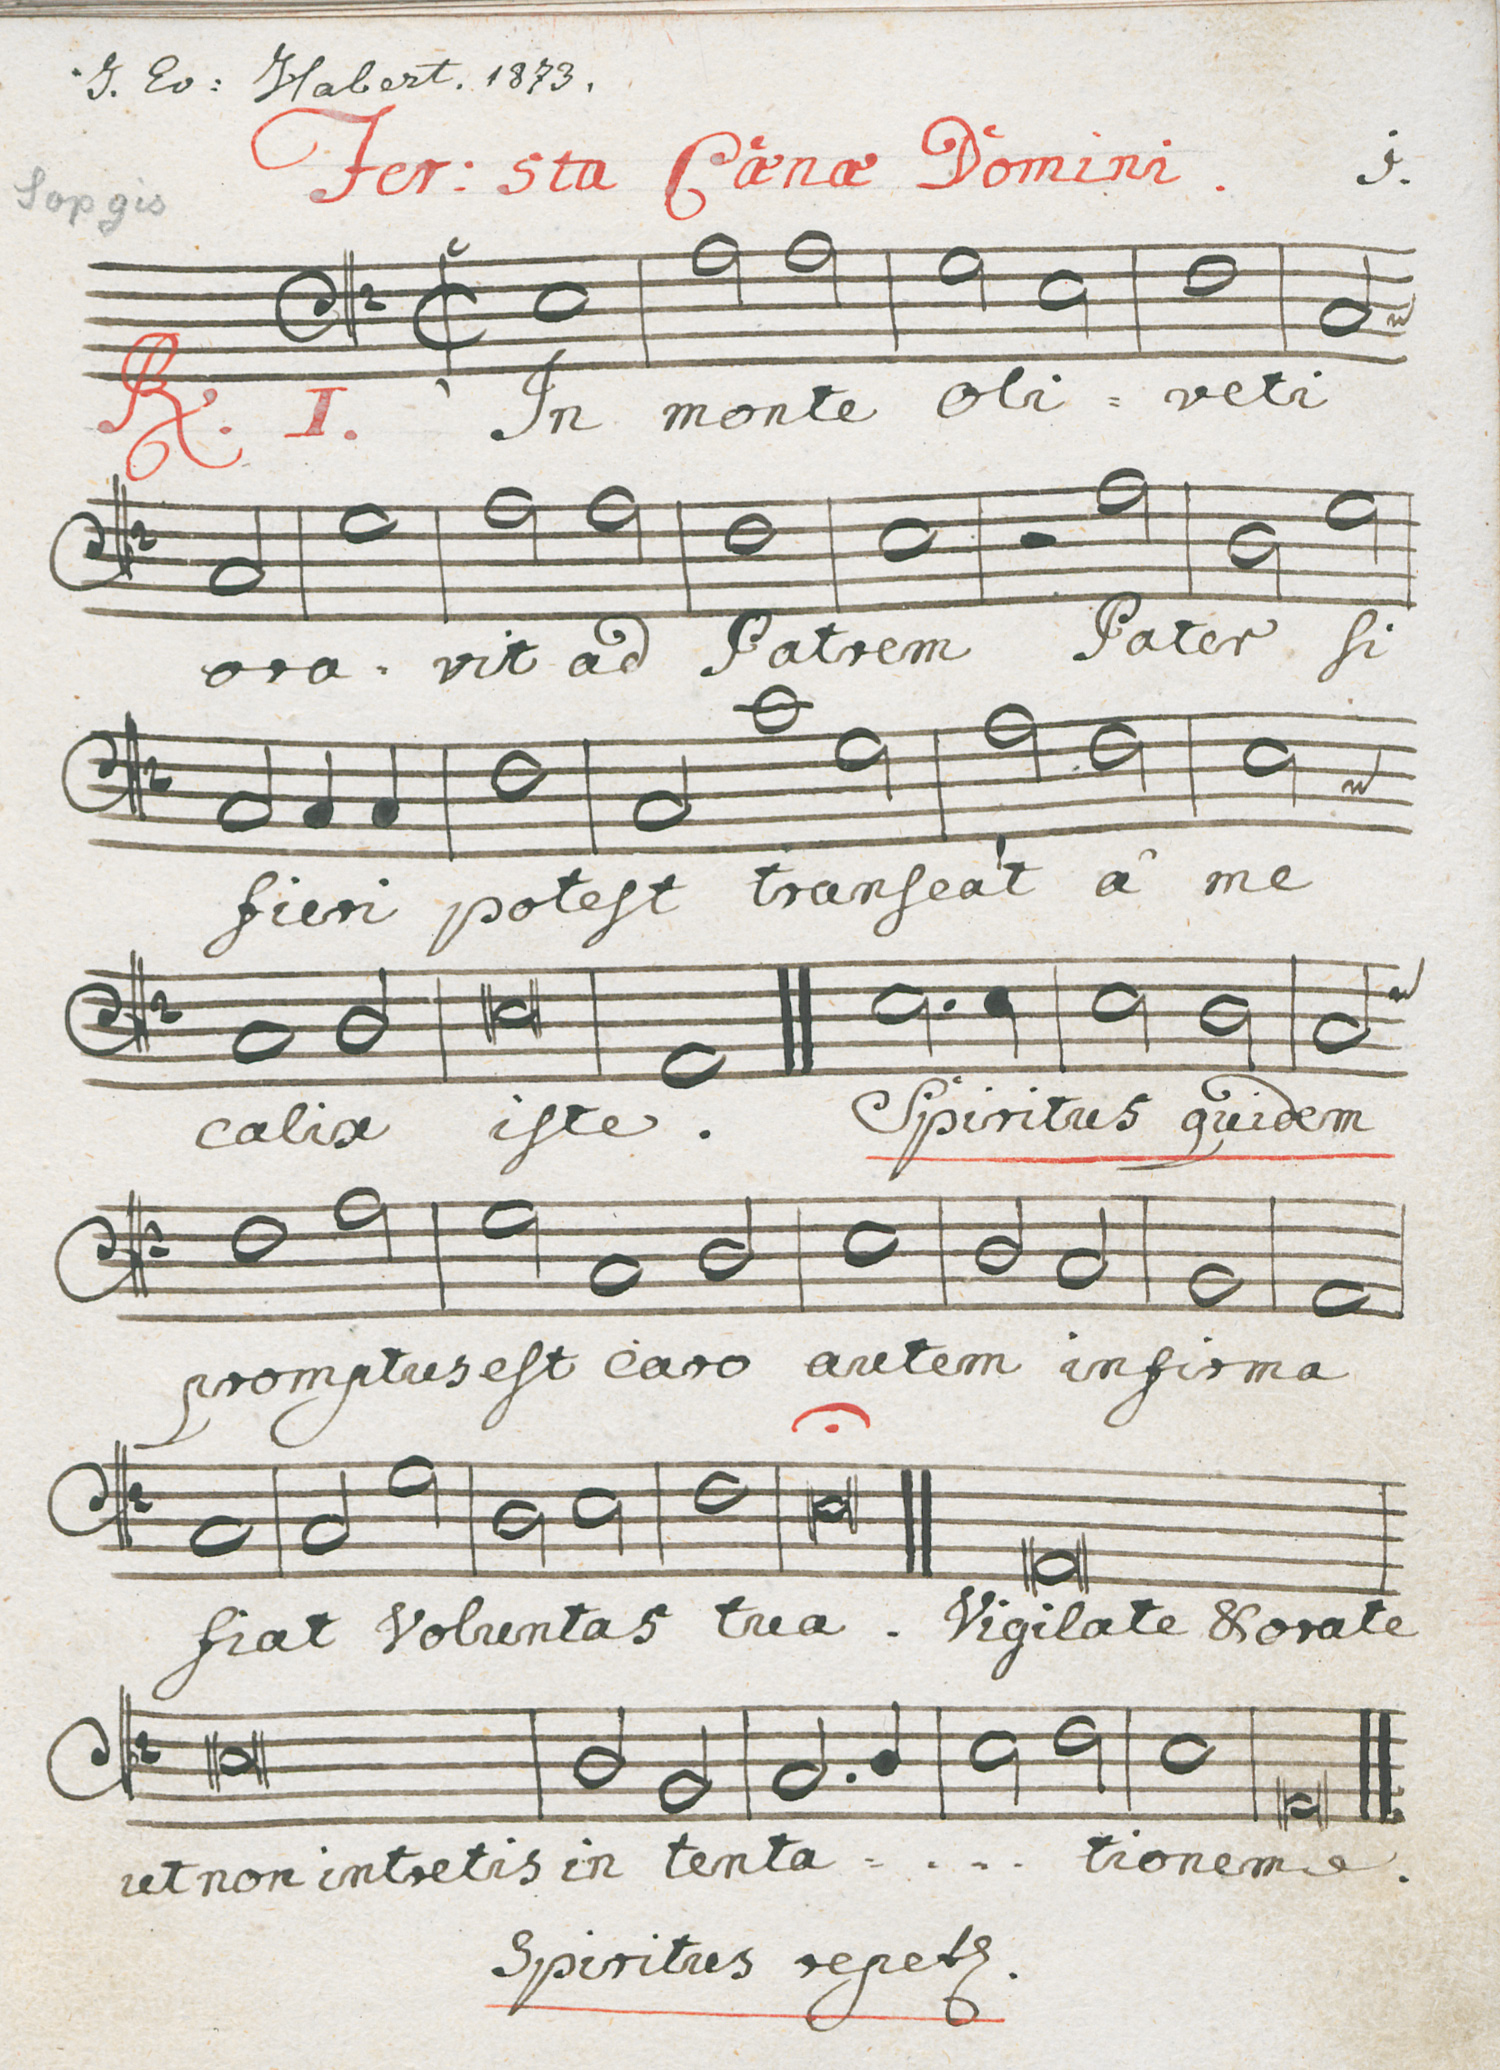 J. Ev: Habert. 1873.
Fer: 5ta Cœnæ Domini. 1.
℟. I. In monte oli = veti
ora - vit ad Patrem Pater ſi
fieri poteſt tranſeát â me
calix iſte.
Spiritus quidem
promptus eſt caro autem infirma
fiat Voluntas tua. Vigilate & orate
ut non intretis in tenta - - - - tionem.
Spiritus repet